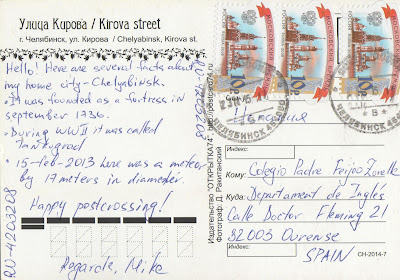 Улица Кирова / Kirova street
г. Челябинск, ул. Кирова / Chelyabinsk, Kirova st.
Hello! Here are several facts about
my home city - Chelyabinsk.
• It was founded as a fortress in
september 1736.
• During WWII it was called
Tankograd
• 15-feb-2013 here was a meteor
by 17 meters in diameter.
Happy postcrossing!
Regards, Mike
RU-4203208
Издательство "ОТКРЫТКА74"
Фотограф: Д. Ракитянский
РОССИЯ
10
10
10
ЧЕЛЯБИНСК
ЧЕЛЯБИНСК
Испания
Кому: Colegio Padre Feijoo Zorelle
Куда: Departament de Inglés
Calle Doctor Fleming 21
32003 Ourense
SPAIN
CH-2014-7